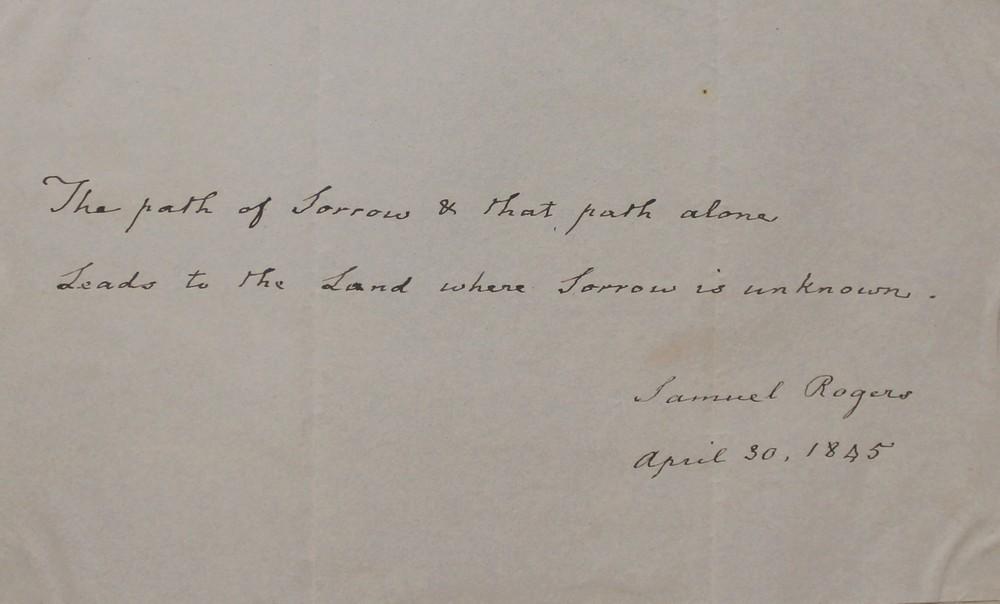 The path of Sorrow & that path alone
Leads to the Land where Sorrow is unknown.
Samuel Rogers
April 30, 1845